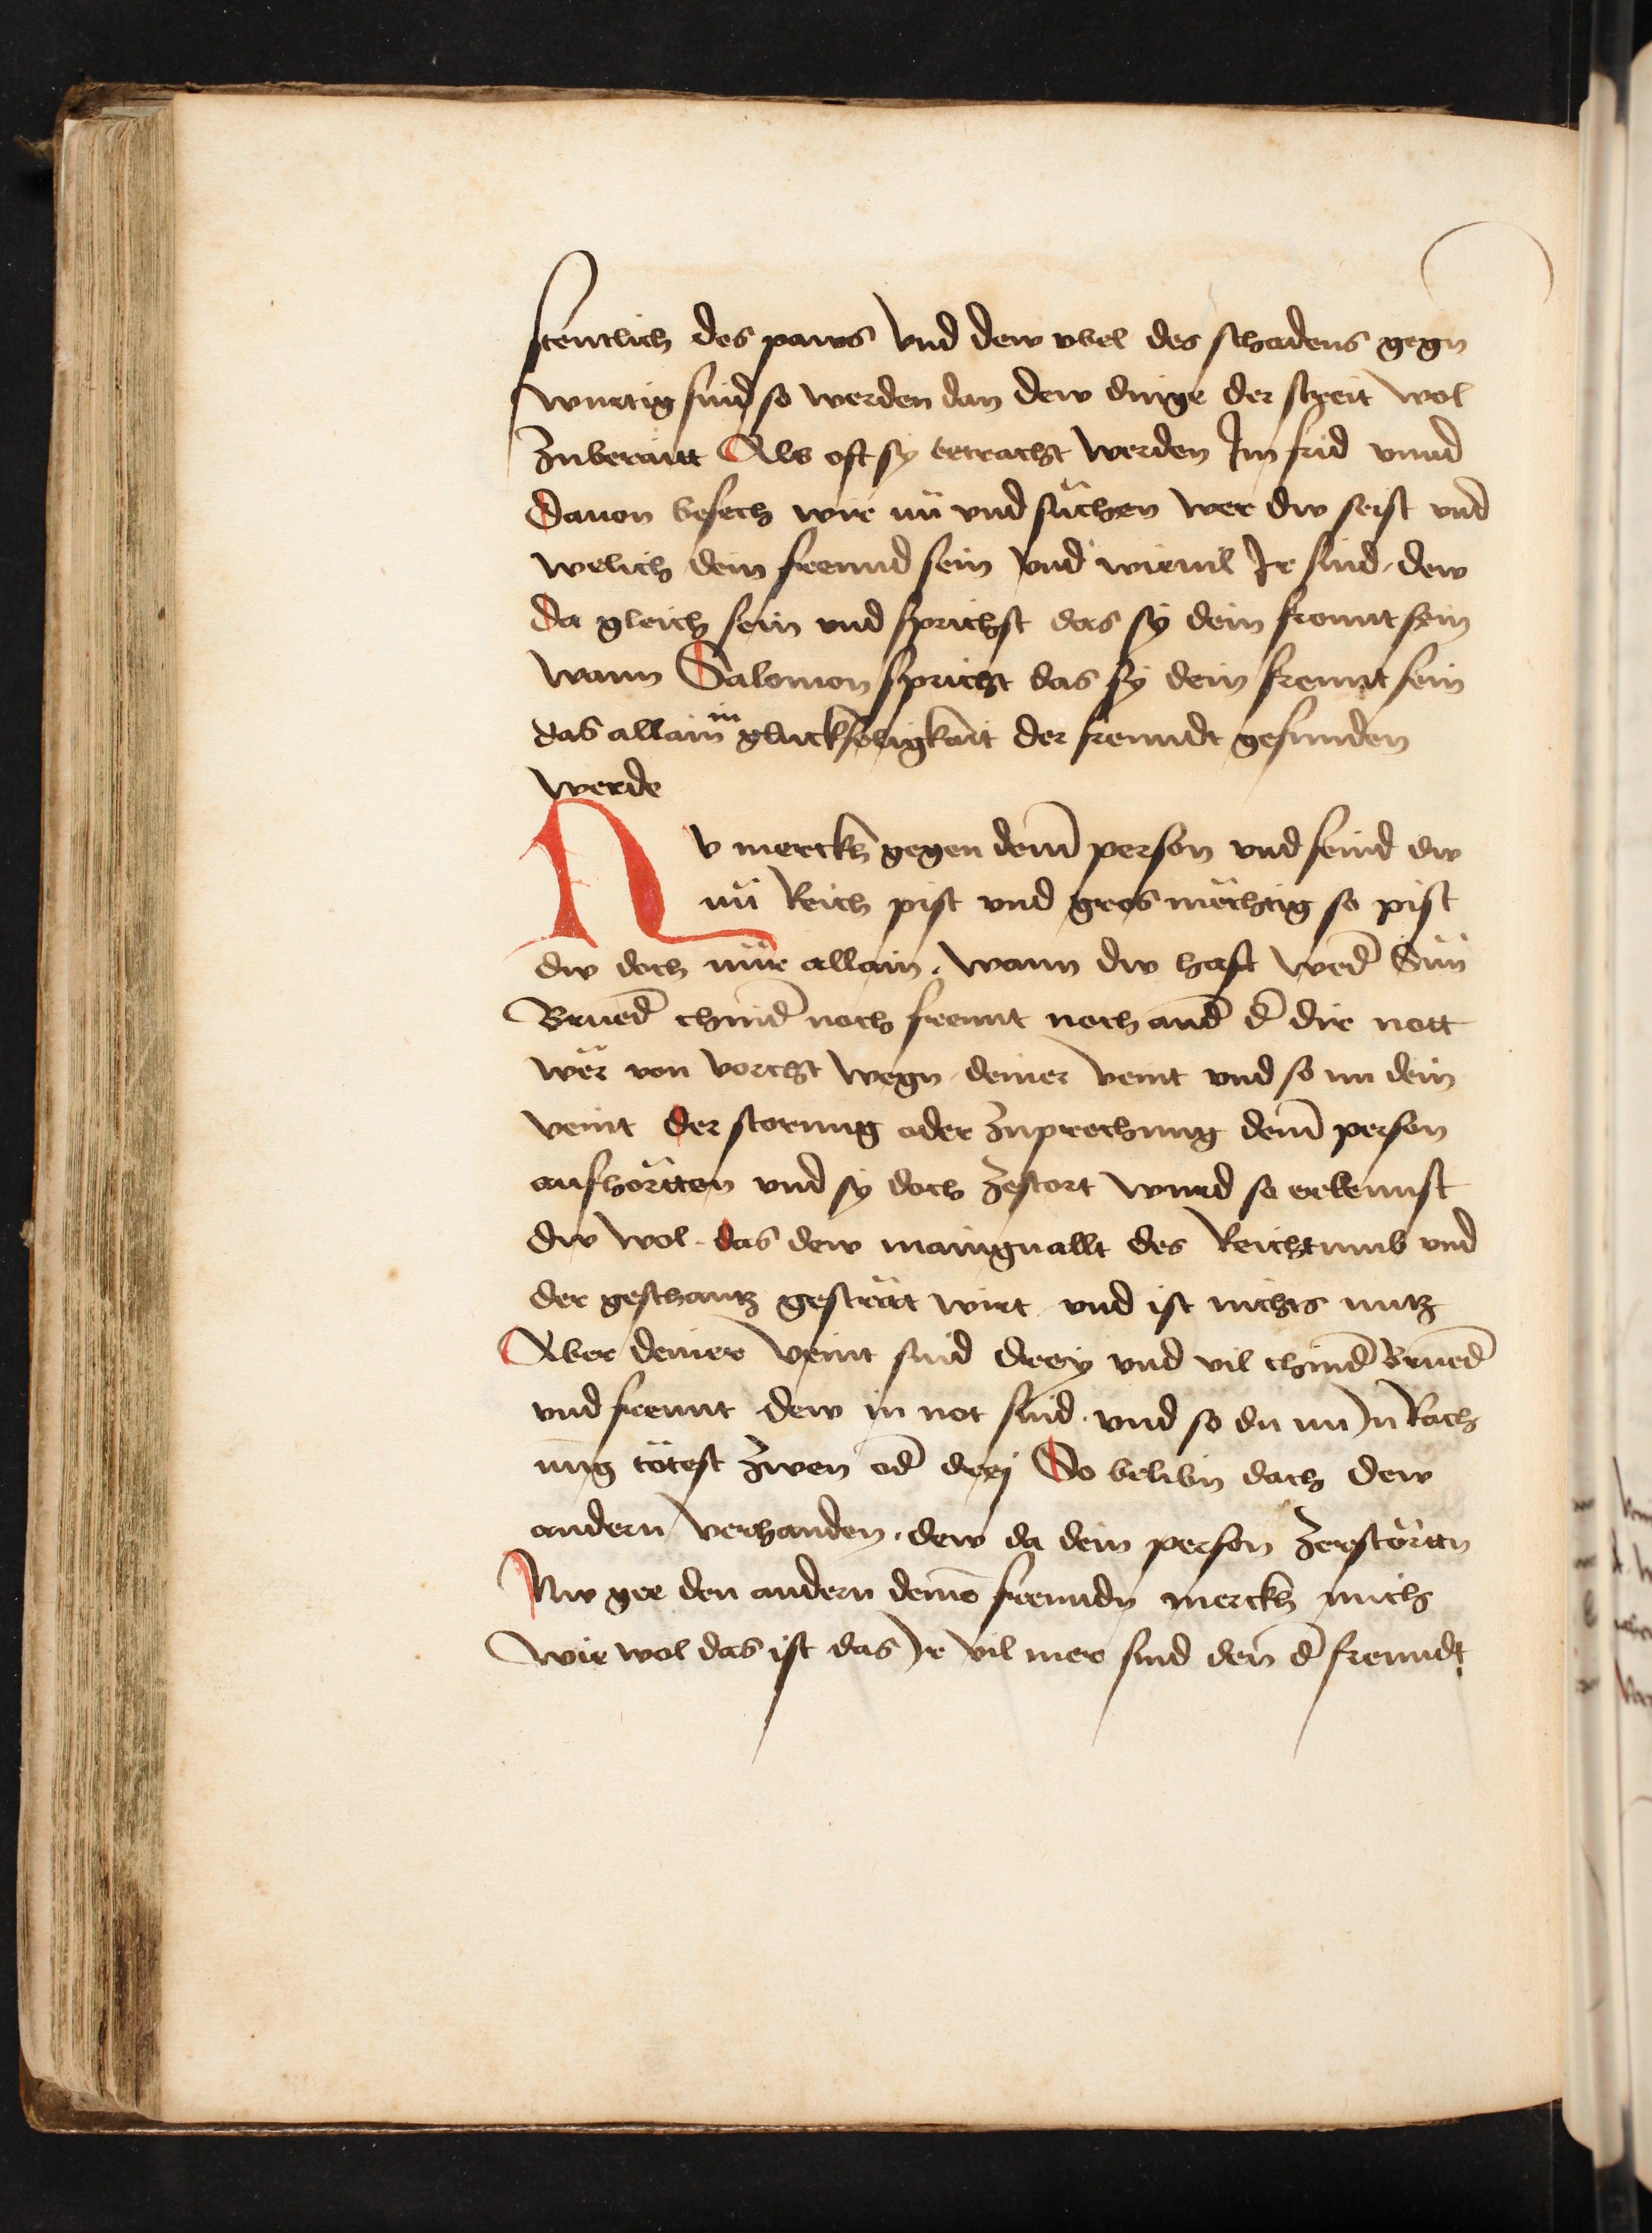 stentlich des paws vnd dew vbel des schadens gegn
wurtig sind so werden dan dew dinge der streit wol
Zuberaitt Als oft sy betracht werden Im frid vnnd
Dauon besech wir nü vnd süchen wer dw seist vnd
welich dein freund sein vnd wieuil Ir sind, dew
da gleich sein vnd sprichst das sy dein freunt sein
wann Salomon spricht das sy dein freunt sein
das allain in glucksäligkait der freundt gefunden
werde
Nv merckh gegen deinē person vnd seind dw
nü Reich pist vnd gros mächtig so pist
dw doch nür allain, wann dw hast wed̄ Sün
Brued̄ chind̄ noch freunt noch and̄ d̄ dir nott
wër von vorcht wegn deiner veint vnd so nu dein
veint der storung oder Zuprechung deinē person
aufhörtten vnd sy doch Zestort wurd so erkennst
dw wol. das dew manignallt des Reichtumb vnd
der geschantz gesträt wirt vnd ist nichts nutz
Aber deiner veint sind drey vnd vil chind̄ Brued̄
vnd freunt dew in not sind. vnd so du nu In Rach
ung tötest Zwen od̄ drej So belibn dach dew
andern verhanden. dew da dein person Zerstörtn
Nw gee den andern deinē freundn merckh mich
wie wol das ist das Ir vil mer sind den d̄ freundt